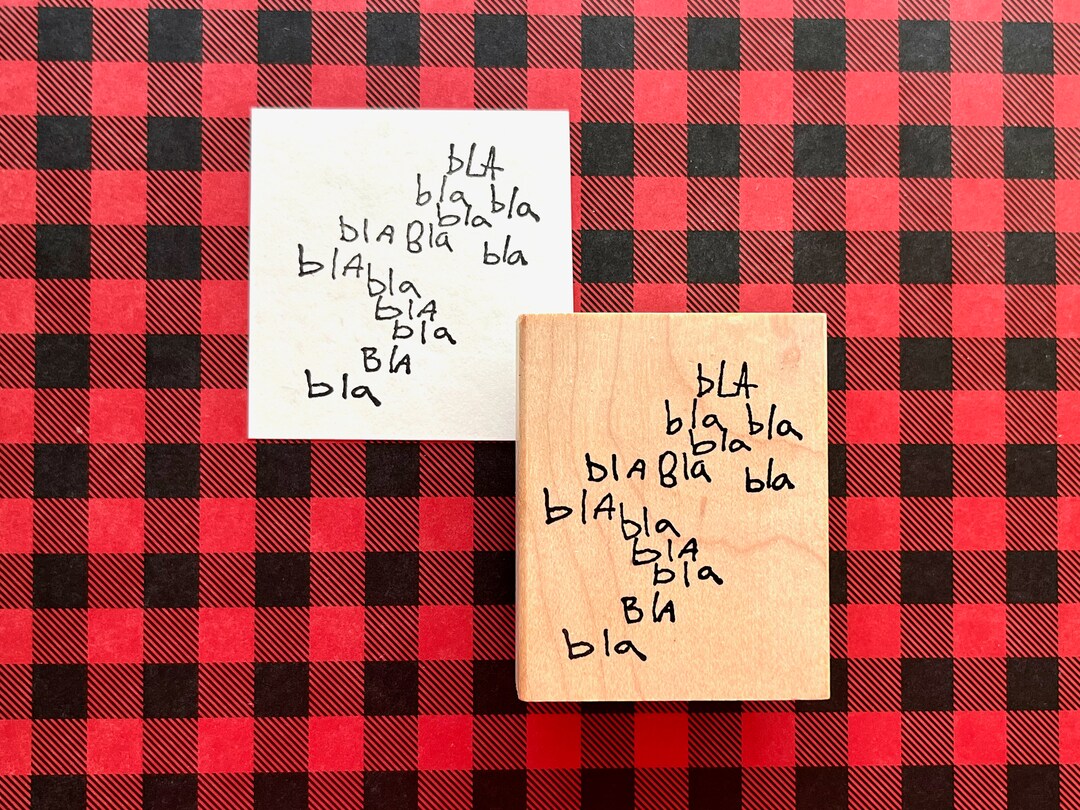 bLA
bla bla
bla
blA Bla bla
blA
bla
blA
bla
BlA
bla
bLA
bla bla
bla
blA Bla bla
blA
bla
blA
bla
BlA
bla